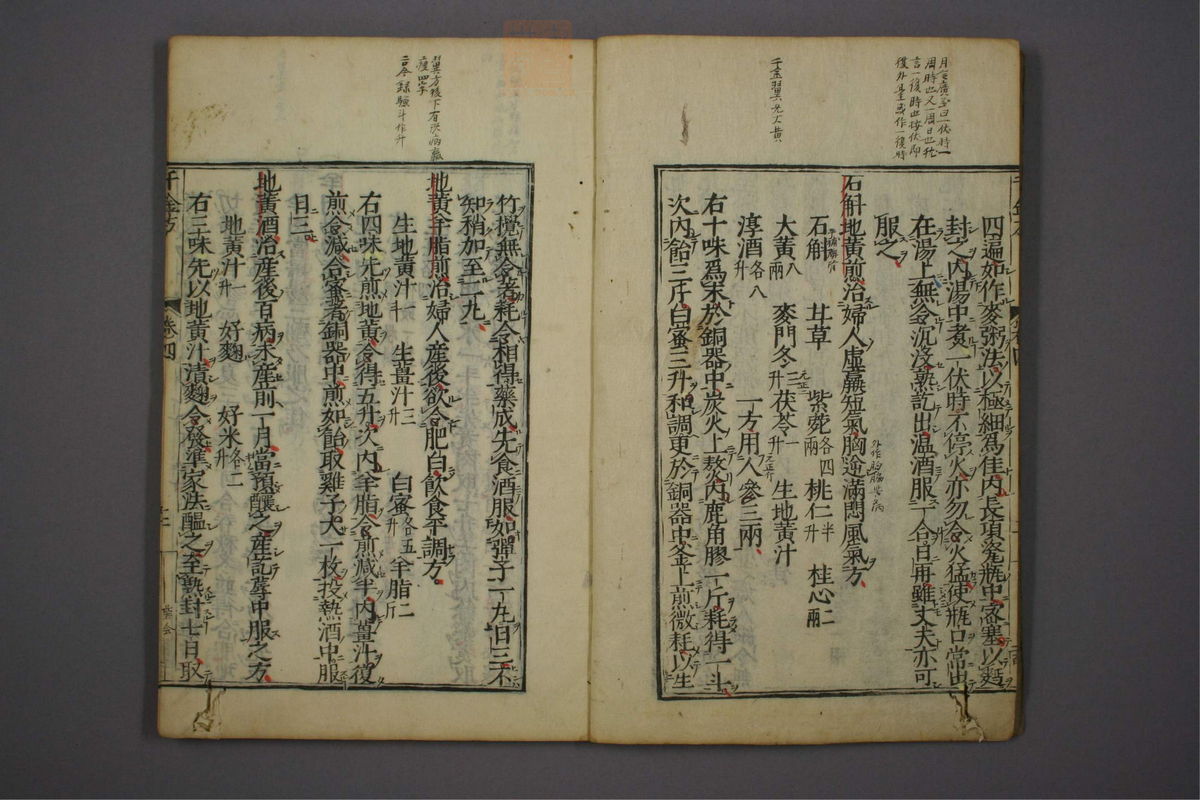 四遍如作麥粥法以極細爲佳内長項瓷瓶中密塞以麪
封之内湯中煑一伏時不停火亦勿令火猛使瓶口常出
在湯上無令沉没熟訖出温酒服一合日再雖丈夫亦可
服之
石斛地黄煎治婦人虛羸短氣胸逆滿悶風氣方
石斛 甘草 紫菀各四兩 桃仁半升 桂心二兩
大黄八兩 麥門冬三升 茯苓一 生地黄汁
淳酒各八升 一方用人參三兩
右十味爲末於銅器中炭火上熬内鹿角膠一斤耗得一斗
次内飴三斤白蜜三升和調更於銅器中釡上煎微耗以生
竹攪無令著耗令相得藥成先食酒服如彈子一丸日三不
知稍加至二丸
地黄羊脂煎治婦人産後欲令肥白飲食平調方
生地黄汁一斗 生薑汁三升 白蜜各五升 羊脂二斤
右四味先煎地黄令得五升次内羊脂令煎減半内薑汁復
煎令減合蜜著銅器中煎如飴取雞子大一枚投熱酒中服
日三
地黄酒治産後百病未産前一月當預釀之産訖蓐中服之方
地黄汁一升 好麴 好米各二
右三味先以地黄汁漬麴令發準家法醞之至熟封七日取
千金方 卷四
千金翼无大黄
翼方後下有
古今録驗斗作升